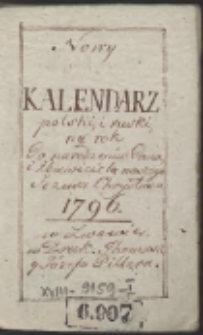 Nowy
KALENDARZ
polski, i ruski
na rok
Po narodzeniu Pana,
i Zbawiciela naszego
Jezusa Chrystusa
1796.
w Lwowie.
w Druk. Thomasza
y Józefa Pillera.
XVIII-9159-I
6.907